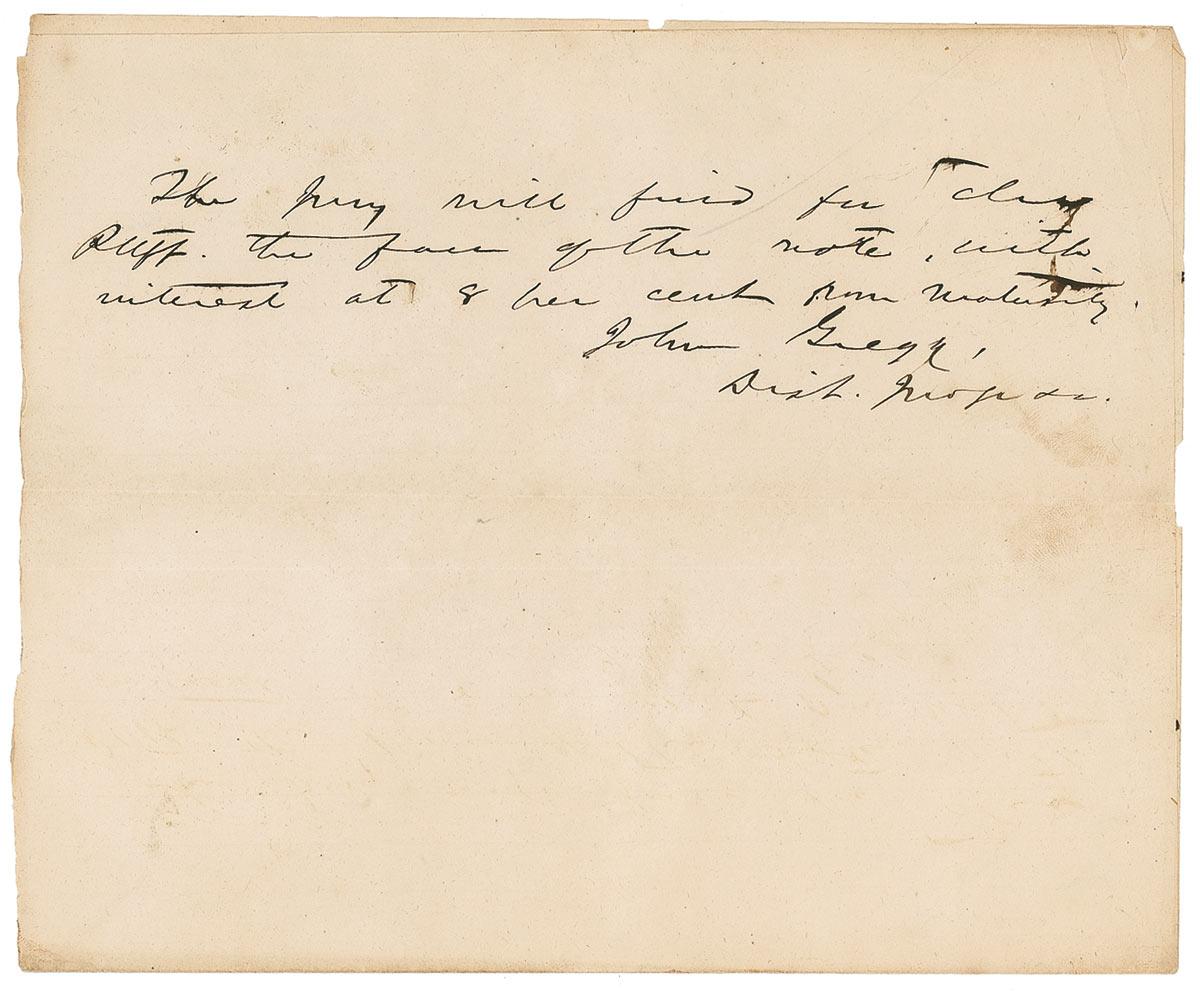 The Jury will find for the
Pltff. the face of the note, with
interest at 8 per cent from maturity.
John Gregg,
Dist. Judge &c.